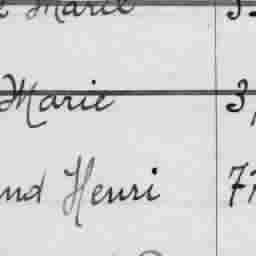 Marie
Marie 3,
nd Henri 77